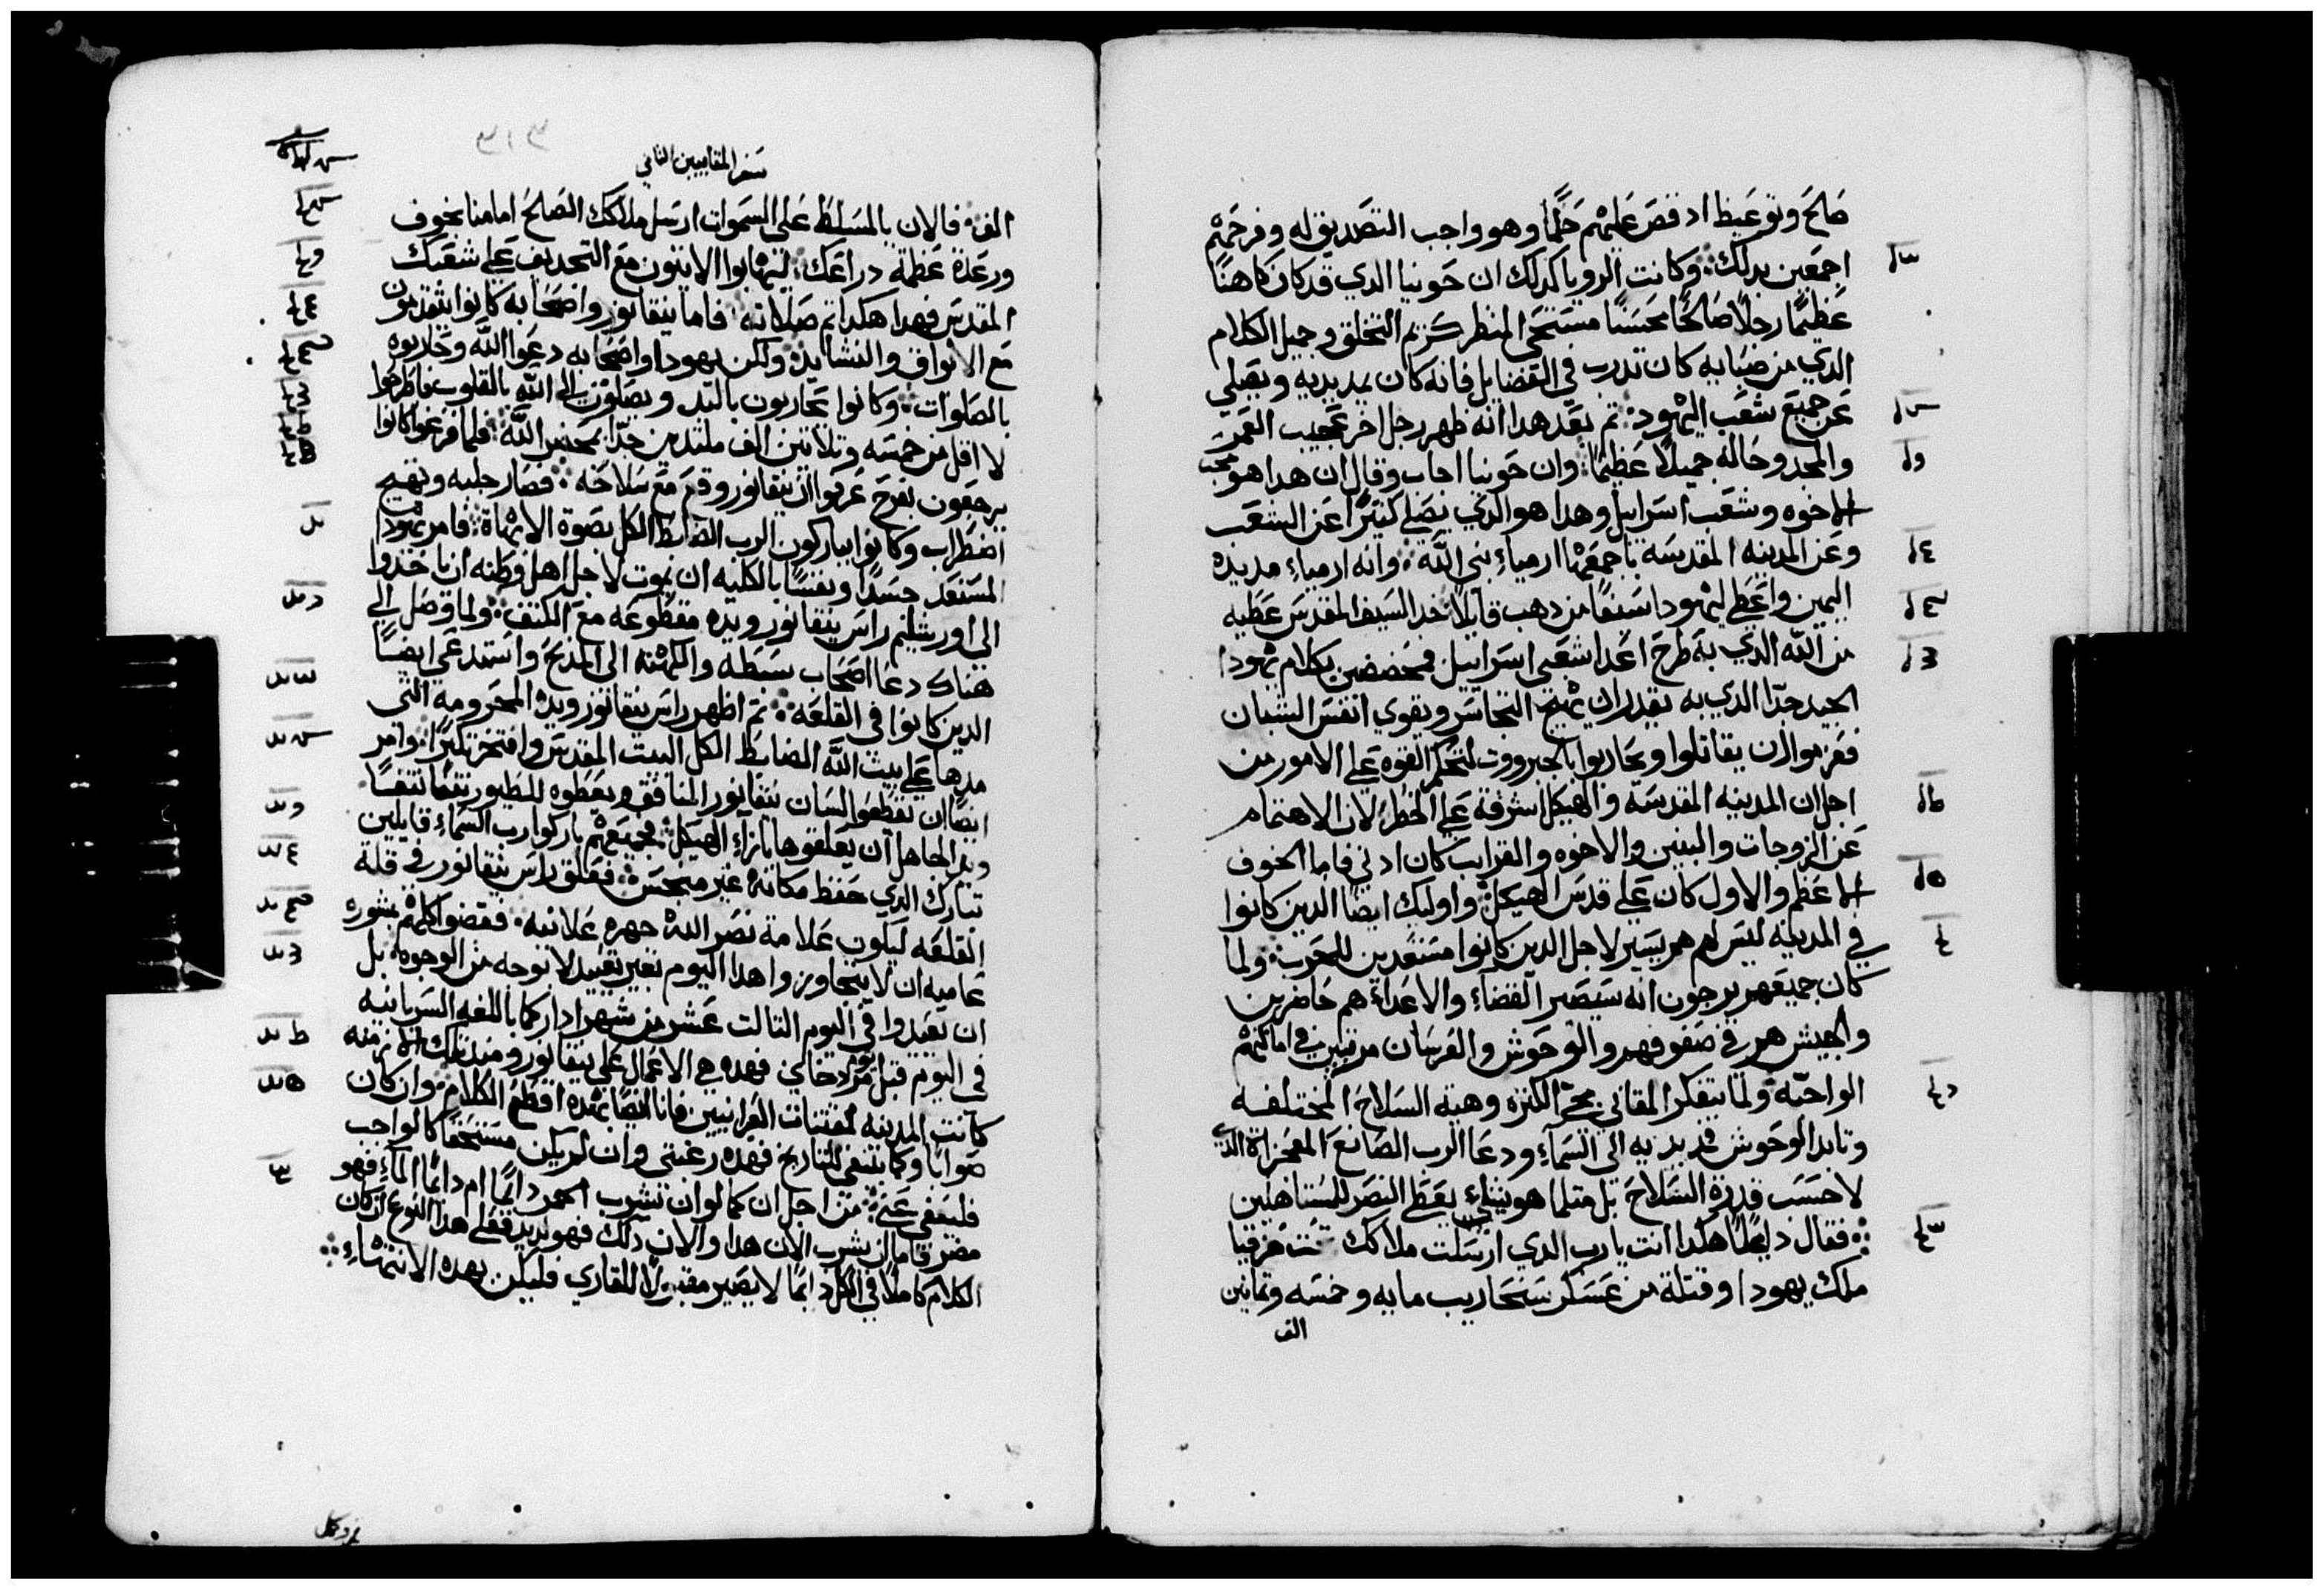 صالح وتوعيظ اد قص عليهم حلما وهو واجب التصديق له وفرحهم
اجمعين بدلك ۞ وكانت الرويا كدلك ان حونيا الدي قد كان كاهنا
عظيما رجلا صالحا محسنا مستحي المنظر كريم التخلق وجميل الكلام
الدي من صبايه كان تدرب في الفضايل فانه كان يمد يديه ويصلي
عن جميع شعب اليهود ۞ تم بعد هدا انه ظهر رجل اخر عجيب العمر
والمجد وحاله جميلا عظيما ۞ وان حونيا اجاب وقال ان هدا هو محب
الاخوه وشعب اسراييل وهدا هو الدي يصلي كتيرا عن الشعب
وعن المدينه المقدسه باجمعها ارمياء نبي الله ۞ وانه ارمياء مد يده
اليمين واعطي ليهودا سيفا من دهب قايلا خد السيف المقدس عطيه
من الله الدي به تطرح اعدا شعبي اسراييل فتحضضين بكلام يهودا
الجيد جدا الدي به تقدر ان تهيج التجاسر ويقوي انفس الشبان
فعزموا ان يقاتلوا ويحاربوا بالجبرووت لتحكم القوه علي الامور من
اجل ان المدينه المقدسه والهيكل اشرفة علي الخطر لان الاهتمام
عن الزوجات والبنين والاخوه والقرايب كان ادني فاما الخوف
الاعظم والاول كان علي قدس الهيكل ۞ واوليك ايضا الدين كانوا
في المدينه ليس لهم هم يسير لاجل الدين كانوا مستعدين للحرب ۞ ولما
كان جميعهم يرجون انه سيصير القضاء والاعداء هم حاضرين
والجيش هم في صفوفهم والوحوش والفرسان مرتبين في اماكنهم
الواجبه ولما يتفكر المقابي مجي الكتره وهية السلاح المختلفه
وتابد الوحوش فمد يديه الي السماء ودعا الرب الصانع المعجزاة الدي
لا حسب قدرة السلاح بل متلما هو يشاء يعطي النصر للمستاهلين
۞ فقال داعيا هكدا انت يارب الدي ارسلت ملاكك تحت حزقيا
ملك يهودا وقتلة من عسكر سنحاريب مايه وخمسه وتمانين
الف
سفر المقابيين التاني
الف ۞ فالان يا المسلط علي السموات ارسل ملاكك الصالح امامنا بخوف
ورعدة عظمة دراعك ۞ ليهابوا الاتيون مع التجديف علي شعبك
المقدس فهدا هكدا تم صلاته ۞ فاما نيقانور واصحابه كانوا يتقدمون
مع الابواق والنشايد ۞ ولكن يهودا واصحابه دعوا الله وحاربوه
بالصلوات ۞ وكانوا يحاربون باليد ويصلون الي الله بالقلوب فاطرحوا
لا اقل من خمسه وتلاتين الف ملتدين جدا بمحضر الله ۞ فلما فرغوا كانوا
يرجعون بفرح عرفوا ان نيقانور وقع مع سلاحه ۞ فصار جلبه وتهيج
اضطراب وكانوا يباركون الرب الضابط الكل بصوة الابهاة ۞ فامر يهودا
المستعد جسدا ونفسا بالكليه ان يموت لاجل اهل وطنه ان ياخدوا
الي اورشليم راس نيقانور ويده مقطوعه مع الكتف ۞ ولما وصل الي
هناك دعا اصحاب سبطه والكهنه الي المدبح واستدعي ايضا
الدين كانوا في القلعه ۞ تم اظهر راس نيقانور ويده المحرومه التي
مدها علي بيت الله الضابط الكل البيت المقدس وافتخر تكبرا ۞ وامر
ايضا ان تقطع السان نيقانور المنافق ويعطوه للطيور نتفا نتفا
ويد الجاهل ان يعلقوها بازاء الهيكل ۞ فجميعهم باركوا رب السماء قايلين
تبارك الدي حفظ مكانه غير منجس ۞ فعلق راس نيقانور في قلة
القلعه ليكون علامة نصر الله جهره علانيه ۞ فقضوا كلهم بشوره
عاميه ان لا يتجاوزوا هدا اليوم بغير تعييد لا بوجه من الوجوه ۞ بل
ان يعيدوا في اليوم التالت عشر من شهر ادار كما باللغه السريانيه
في اليوم قبل مردخاي فهده هي الاعمال علي نيقانور ومند تلك الازمنه
كانت المدينه تقتنات العبرانيين فانا ايضا بهده اقطع الكلام ۞ وان كان
صوابا وكما ينبغي للتاريخ فهده رغبتي وان لم يكن مستحقا كالواجب
فليعفي عني ۞ من اجل ان كما لو ان نشرب الخمر دايما ام دايما الماء فهو
مضر فاما ان يشرب الان هدا والان دلك فهو لديد فعلي هدا النوع ان كان
الكلام كاملا في الكل دايما لا يصير مقبولا للقاري فليكن بهده الانتهاء ۞